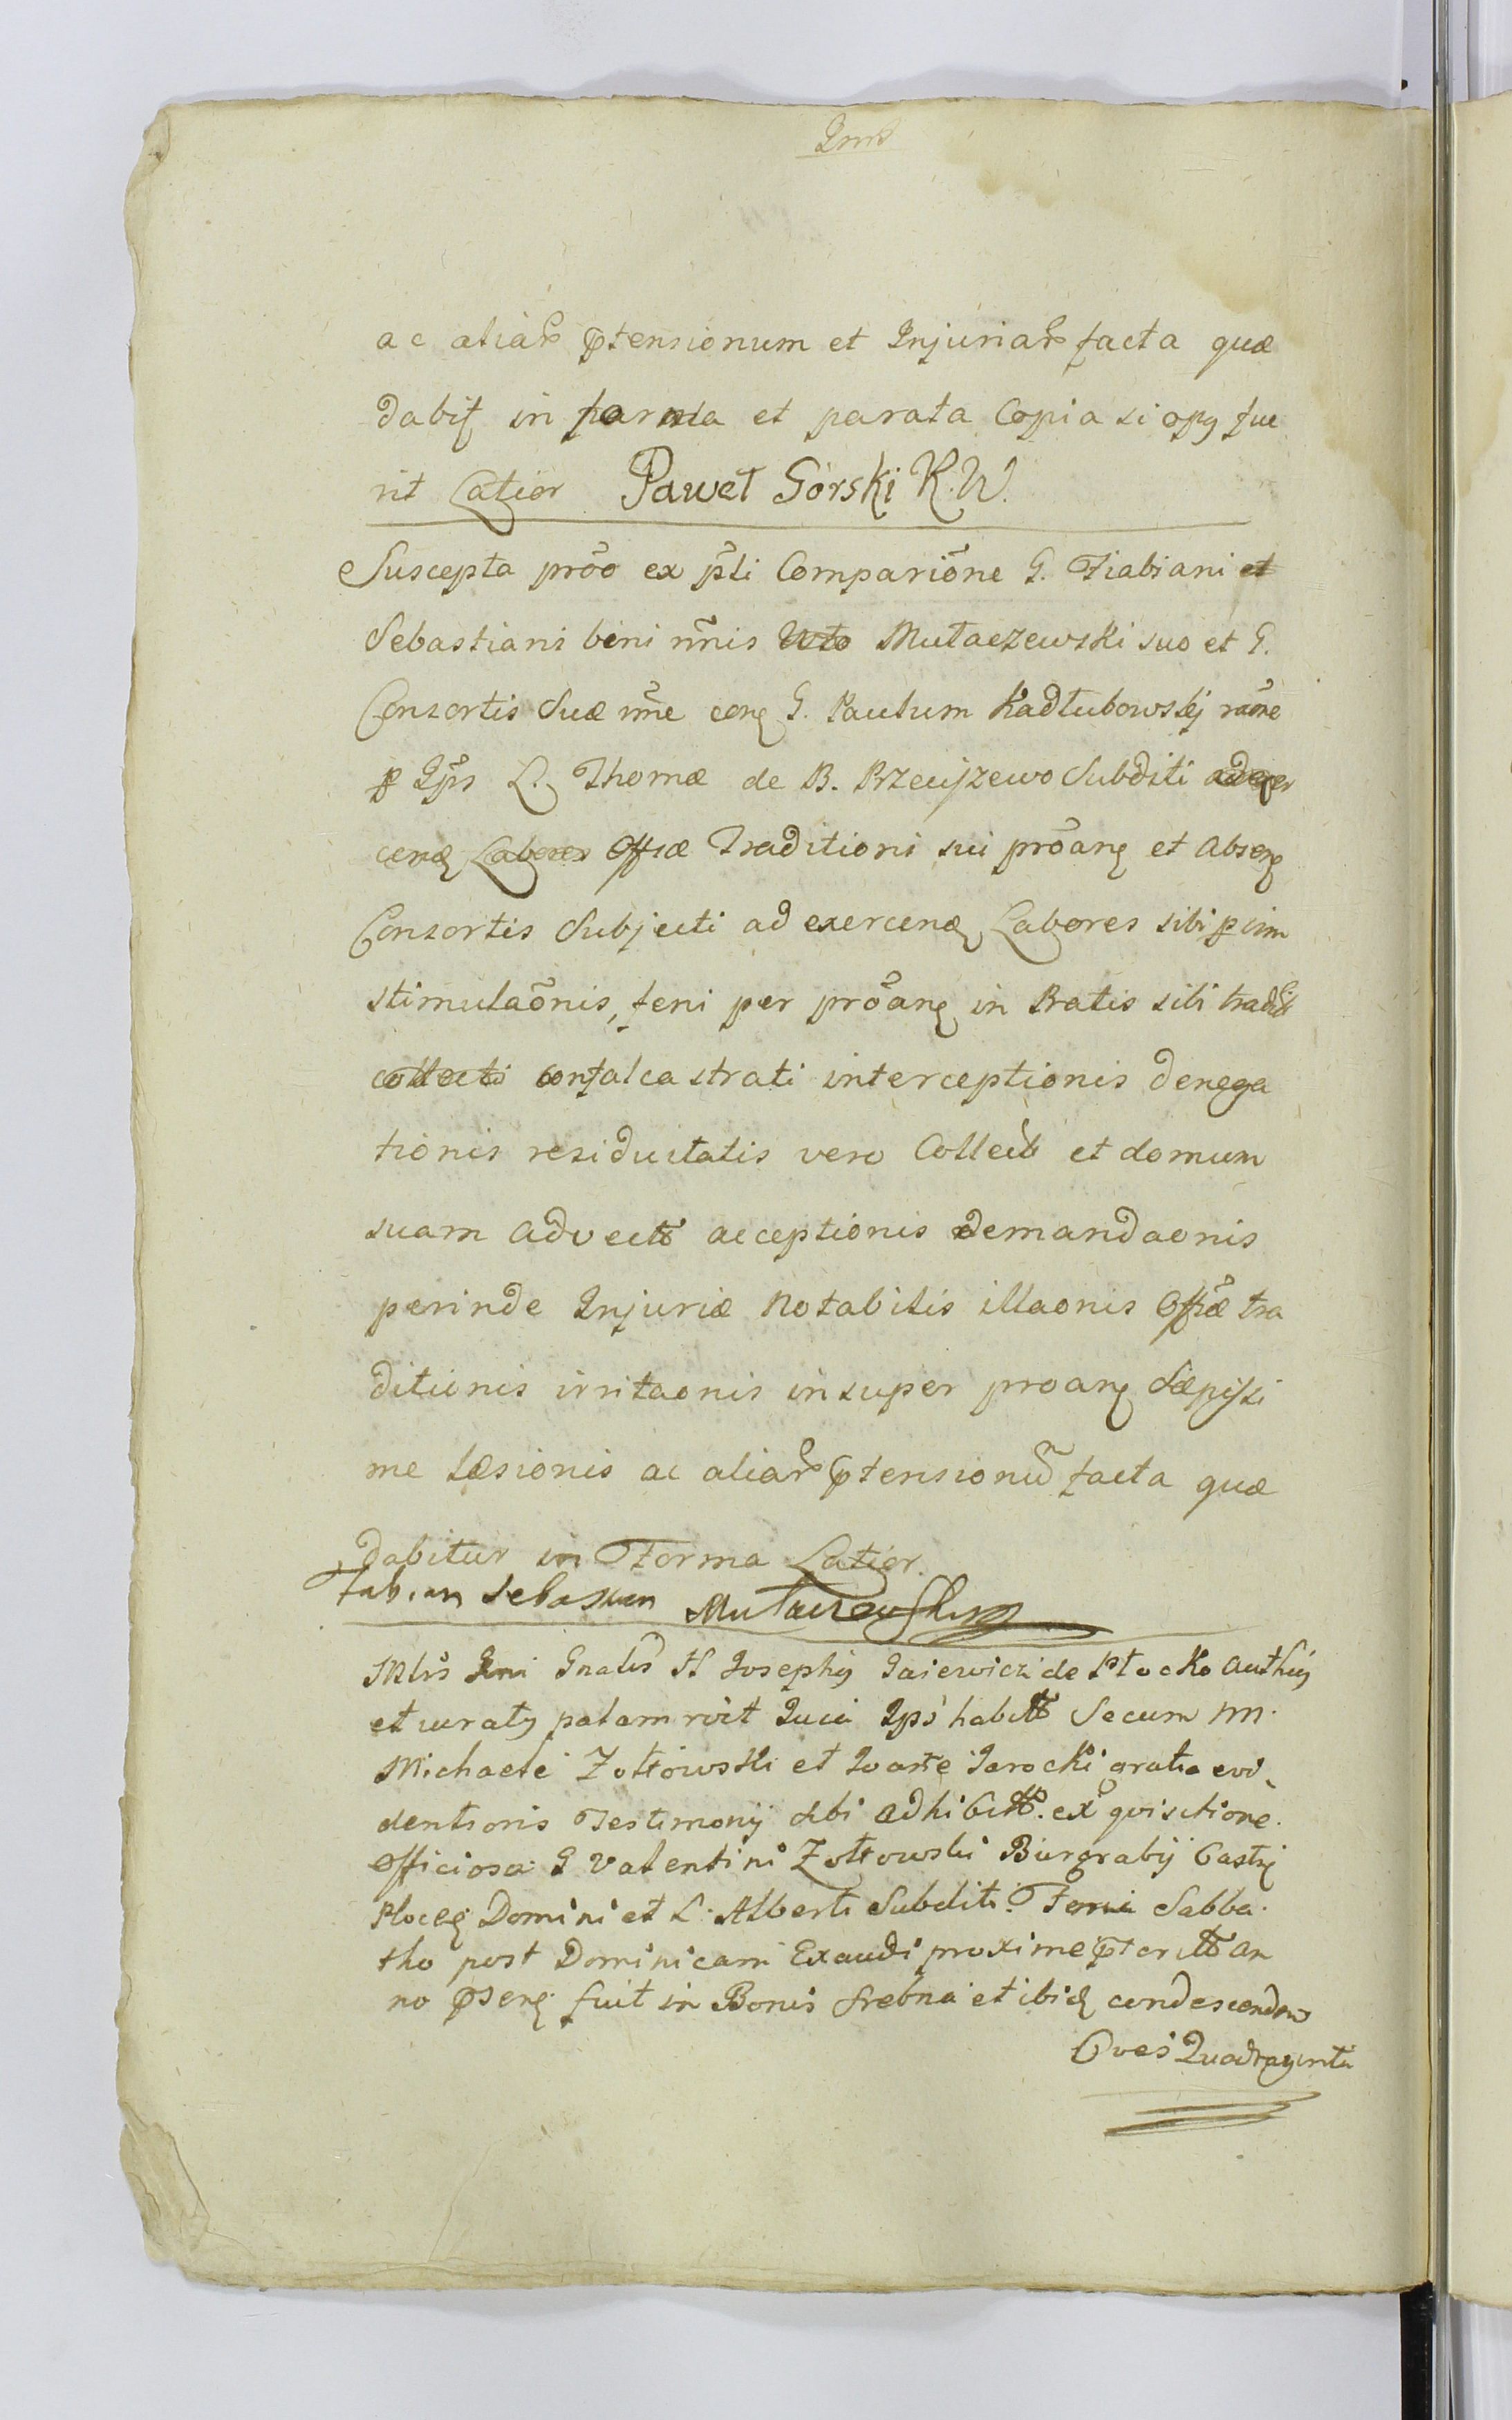 ac aliar ptensionum et Injuriar facta quæ
dabit in parata et parata Copia si opg fue
rit Latior Paweł Górski K.W.
Suscepta prõo ex pti Compariõne G. Fiabiani et
Sebastiani bini nñis Mułaczewski suo et G.
Consortis Suæ nñe cong G. Paulum Kadłubowskj rãone
p Ips L. Thomæ de B. Brzeujzewo Subditi
cend Labores Offsæ Traditioni sui prõang et Absen
Consortis Subjecti ad exercend Labores sibi
stimulaõnis, feni per prõang in Pratis sibi tradit
collecti confalcastrati interceptionis denega
tionis residuitatis vero Collecti et domum
suam advecti acceptionis demandaonis
perinde Injuriæ Notabilis illaonis Offsæ tra
ditionis irritaonis insuper proang Sæpissi
me læsionis ac aliar ptensionũ facta quæ
dabitur in Forma Latior.
Fabian Sebastian Mułaczewski
Mlrs Gnalis H Josephg Jaiewicz de Płocko Authg
et iuratg palam rvit Quia Ips habitt Secum m.
Michaele Żółtowski et Joañe Jarocki gratia evi
dentioris Testimonij sibi adhibitt. ex qvisitione
officiosa G Valentini Żółtowski Burgrabij Castr
Plocen Domini et L. Alberti Subditi. Feria Sabba
tho post Dominicam Exaudi proxime pteritt an
no psenq fuit in Bonis Srebna et ibid condescendens
Oves Quadraginta